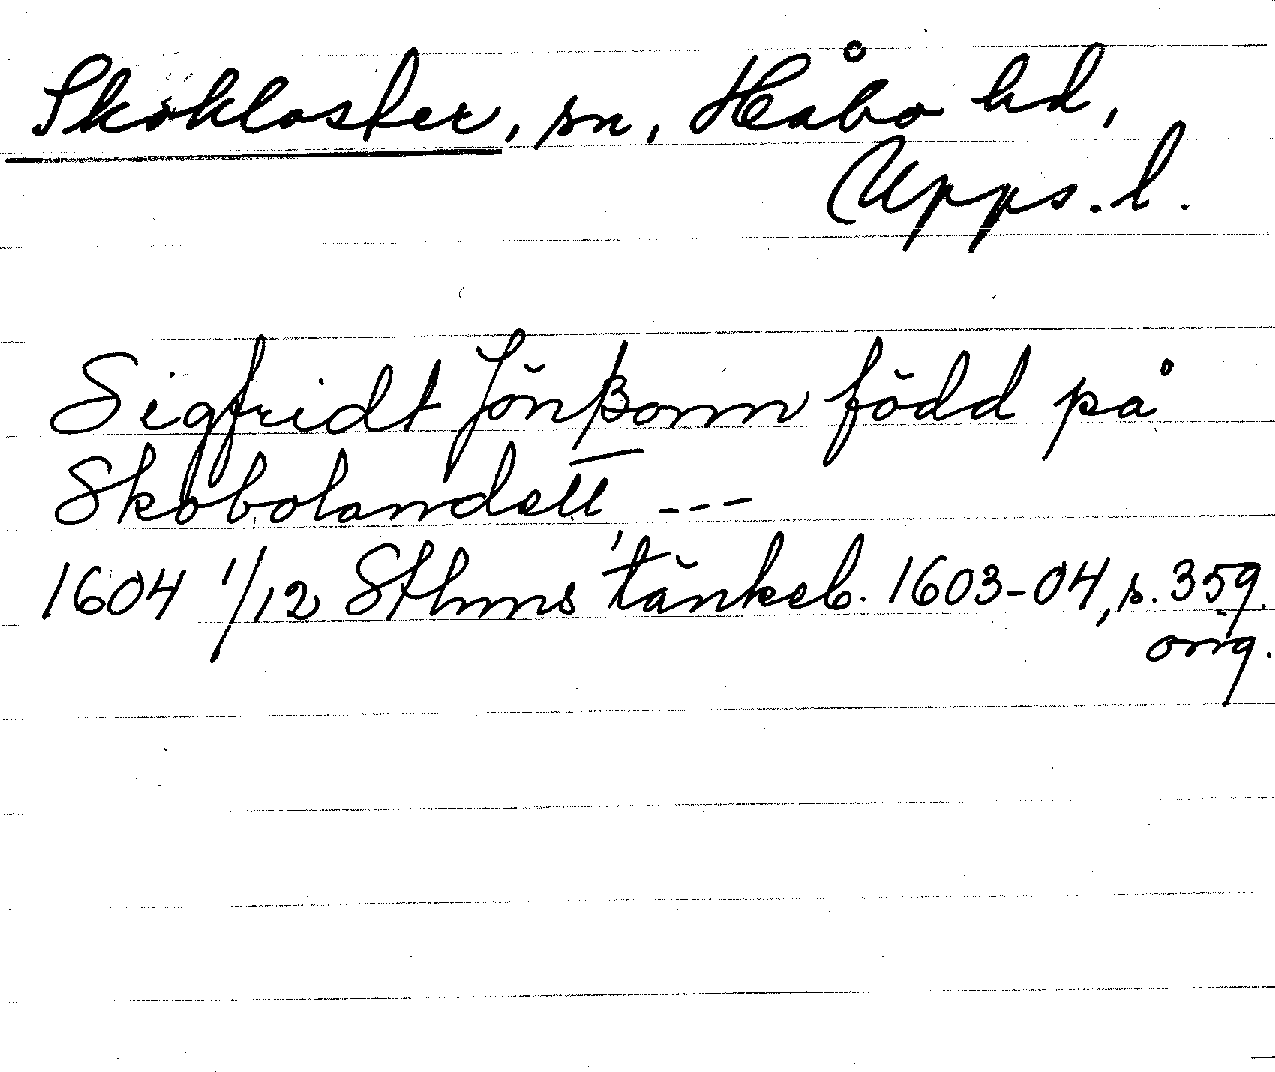 Skokloster, sn, Håbo hd,
Upps. l.
Sigfridt Jönßonn född på
Skobolandett ---
1604 1/12 Sthms tänkeb. 1603-04, s. 359.
orig.